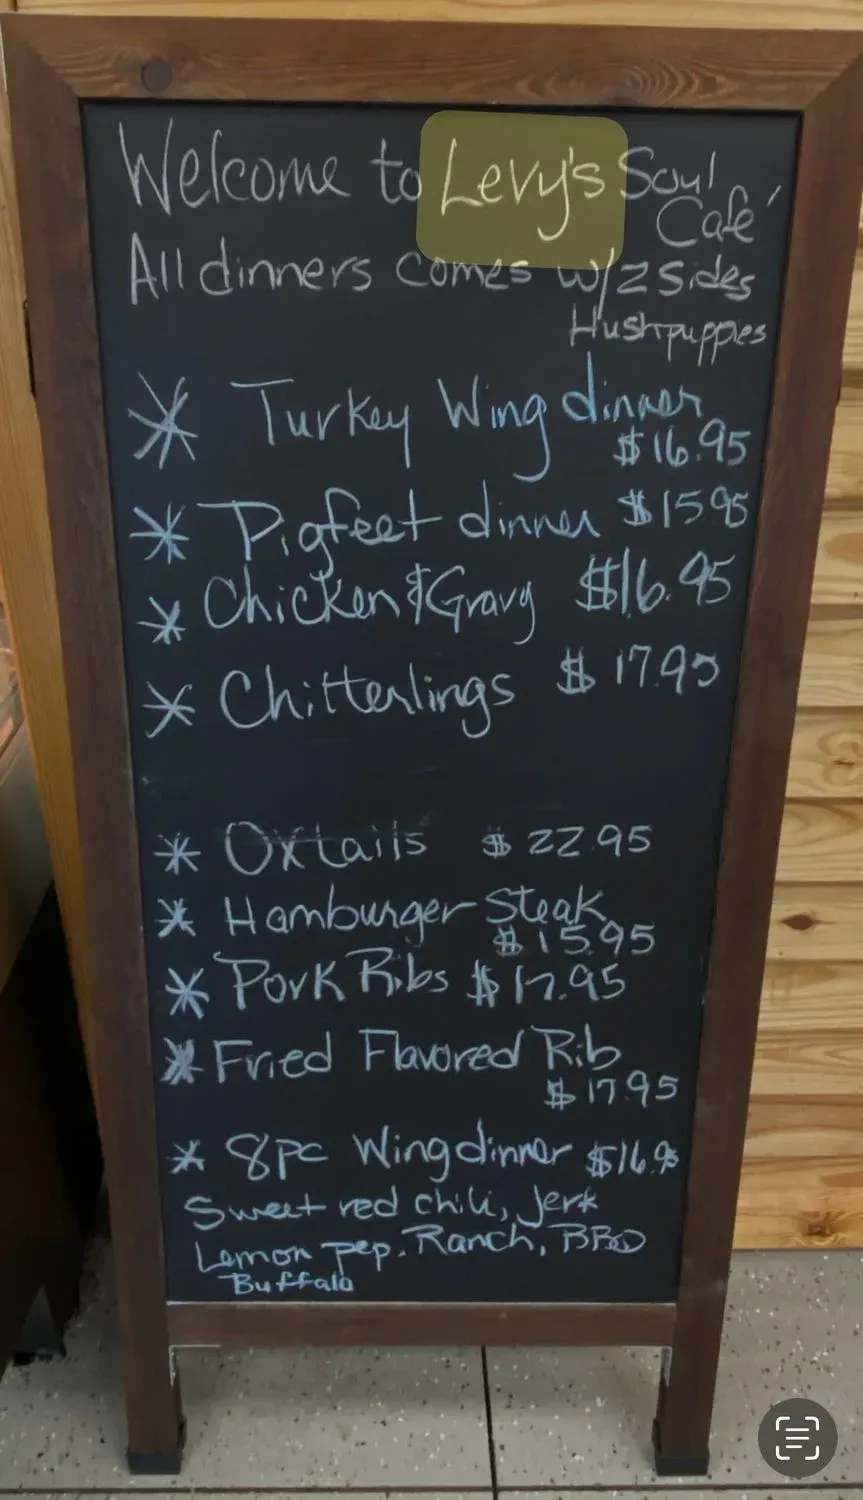 Welcome to Levy's Soul
Café
All dinners comes w/2 Sides
Hushpuppies
* Turkey Wing dinner
$16.95
* Pigfeet dinner $15.95
* Chicken & Gravy $16.95
* Chitterlings $17.95
* Oxtails $22.95
* Hamburger Steak
$15.95
* Pork Ribs $17.95
* Fried Flavored Rib
$17.95
* 8pc Wing dinner $16.95
Sweet red chili, Jerk
Lemon pep. Ranch, BBQ
Buffalo